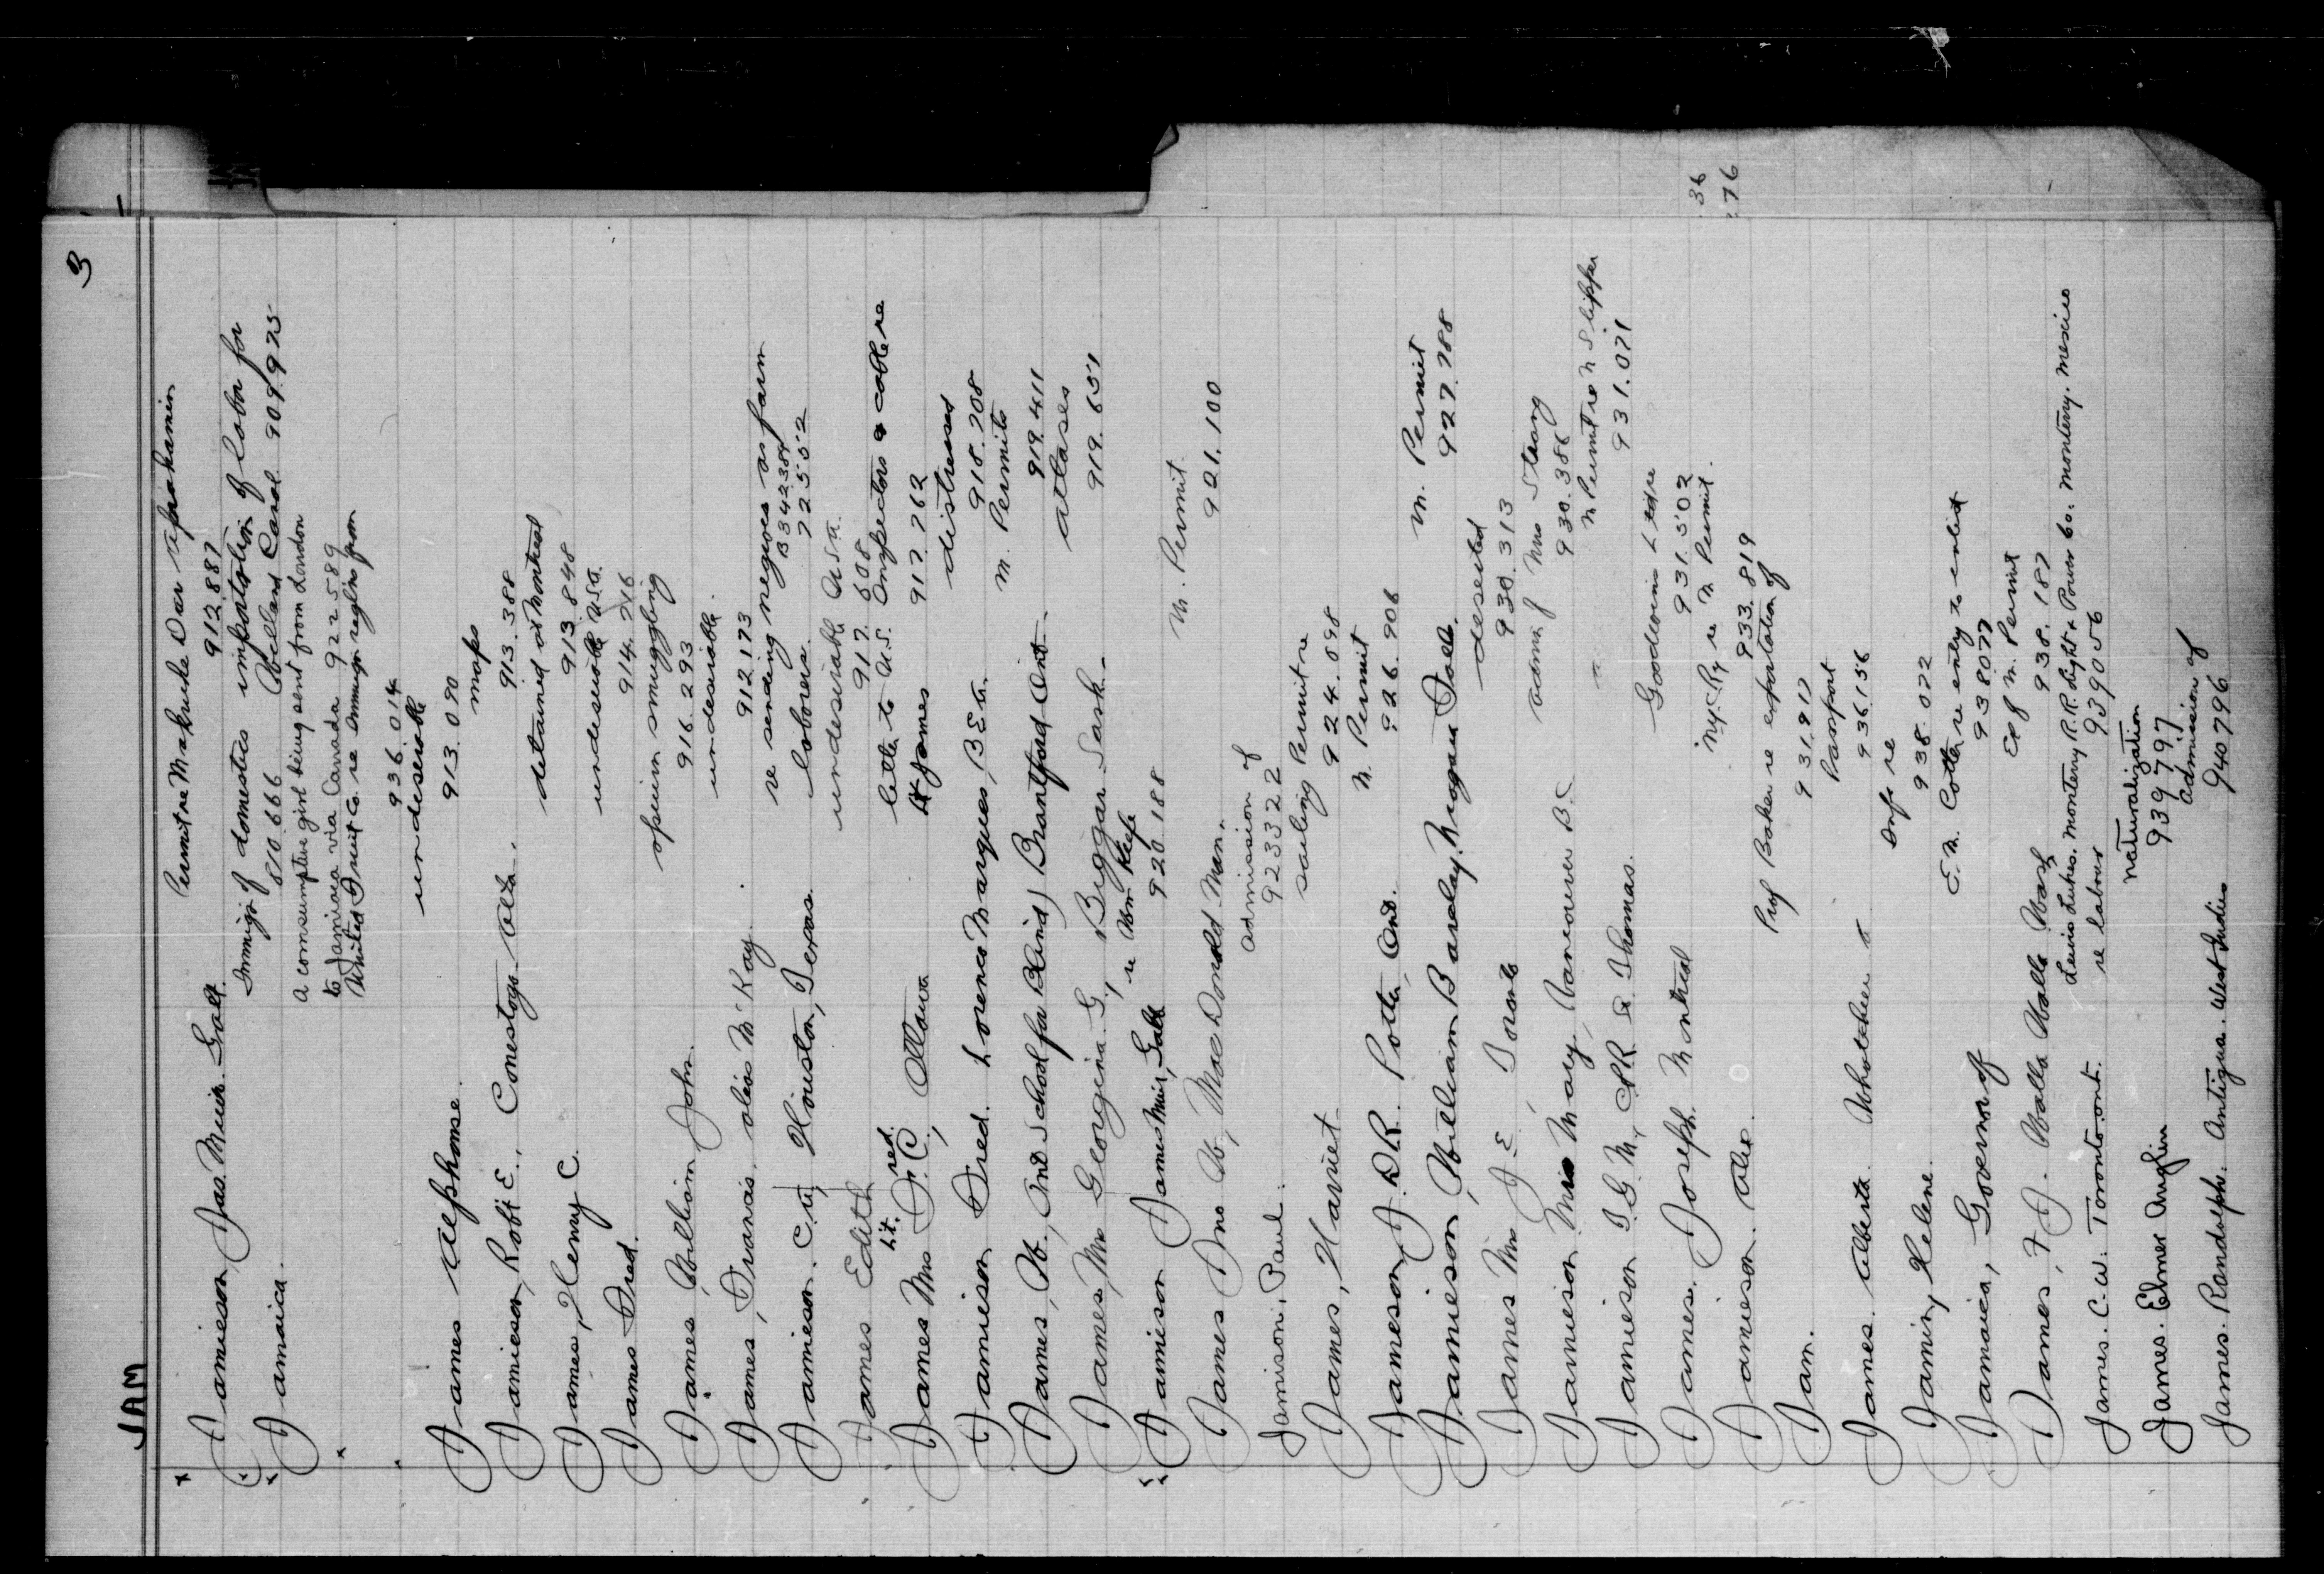 3
JAM
Permit re Makuke Dar
Jamieson, Jas. Muir. Galt. 912.887
Immigr of domestics importation of labor for
Jamaica. 810.666 Holland Canal 909.975
A consumptive girl being sent from London
to Jamaica via Canada 922589
United Fruit Co. re Immigr. regltns from
936.014
undesirable
James Alphonse. 913.090
maps
Jamieson, Robt E., Conestogo Alta. 913.388
detained at Montreal
James, Henry C. 913.848
undesirable U.S.A.
James Fred. 914.216
opium smuggling
James, William John. 916.293
undesirable.
James, Francis, alias McKay. 912.173
re sending negroes as farm B342384
Jamieson. C.W, Houston, Texas. laborers. 72552
undesirable U.S.A.
James Edith 917.608
Lt. red. letter to U.S. Inspectors & cable re
James Mrs Fr. C., Ottawa Lt James 917.262
distressed
Jamieson Fred. Lourenco Marques, B.E.A. 918.208
M. Permits
James, W., Ont School for Blind, Brantford Ont. 919.411
atlases
James, Mrs Georgina G., Biggar Sask. 919.651
re Wm Keefe
Jamieson James Muir, Galt 920.188
M. Permit.
James Jno W., MacDonald Man. 921.100
admission of
Jamison. Paul. 923322
sailing Permit re
James, Harriet 924.698
M. Permit
Jameson, J. D.R. Potter, Ont. 926.906
M. Permit
Jamieson, William Barclay, Niagara Falls. 927.788
deserted
James Mrs J.E. Toronto 930.313
admn of Mrs Strong
Jamieson Miss Mary, Vancouver B.C. 930.386
M Permit re M Slipper
Jamieson T.G.M., C.P.R. St Thomas. 931.071
Goodwins Ltd re
James. Joseph Montreal 931.502
NY.C.Ry re M Permit. 36
Jamieson. Alex. 933.819 276
Prof Baker re exportation of
Jam. 931.917
Passport
James. Alberta. 936156
Info re
Jamin, Helene. 938.022
E.M. Cotter re entry to enlist
Jamaica, Governor of 938077
M. Permit
James, F.J. Walla Walla Wash 938.187
Lewis Lukes. Monterry R.R. Light & Power Co. Monterry. Mexico
James. C.W. Toronto. ont. re labour 939056
naturalization
James. Elmer Anglin 939797
admission of
James. Randolph. Antigua. West Indies 940796